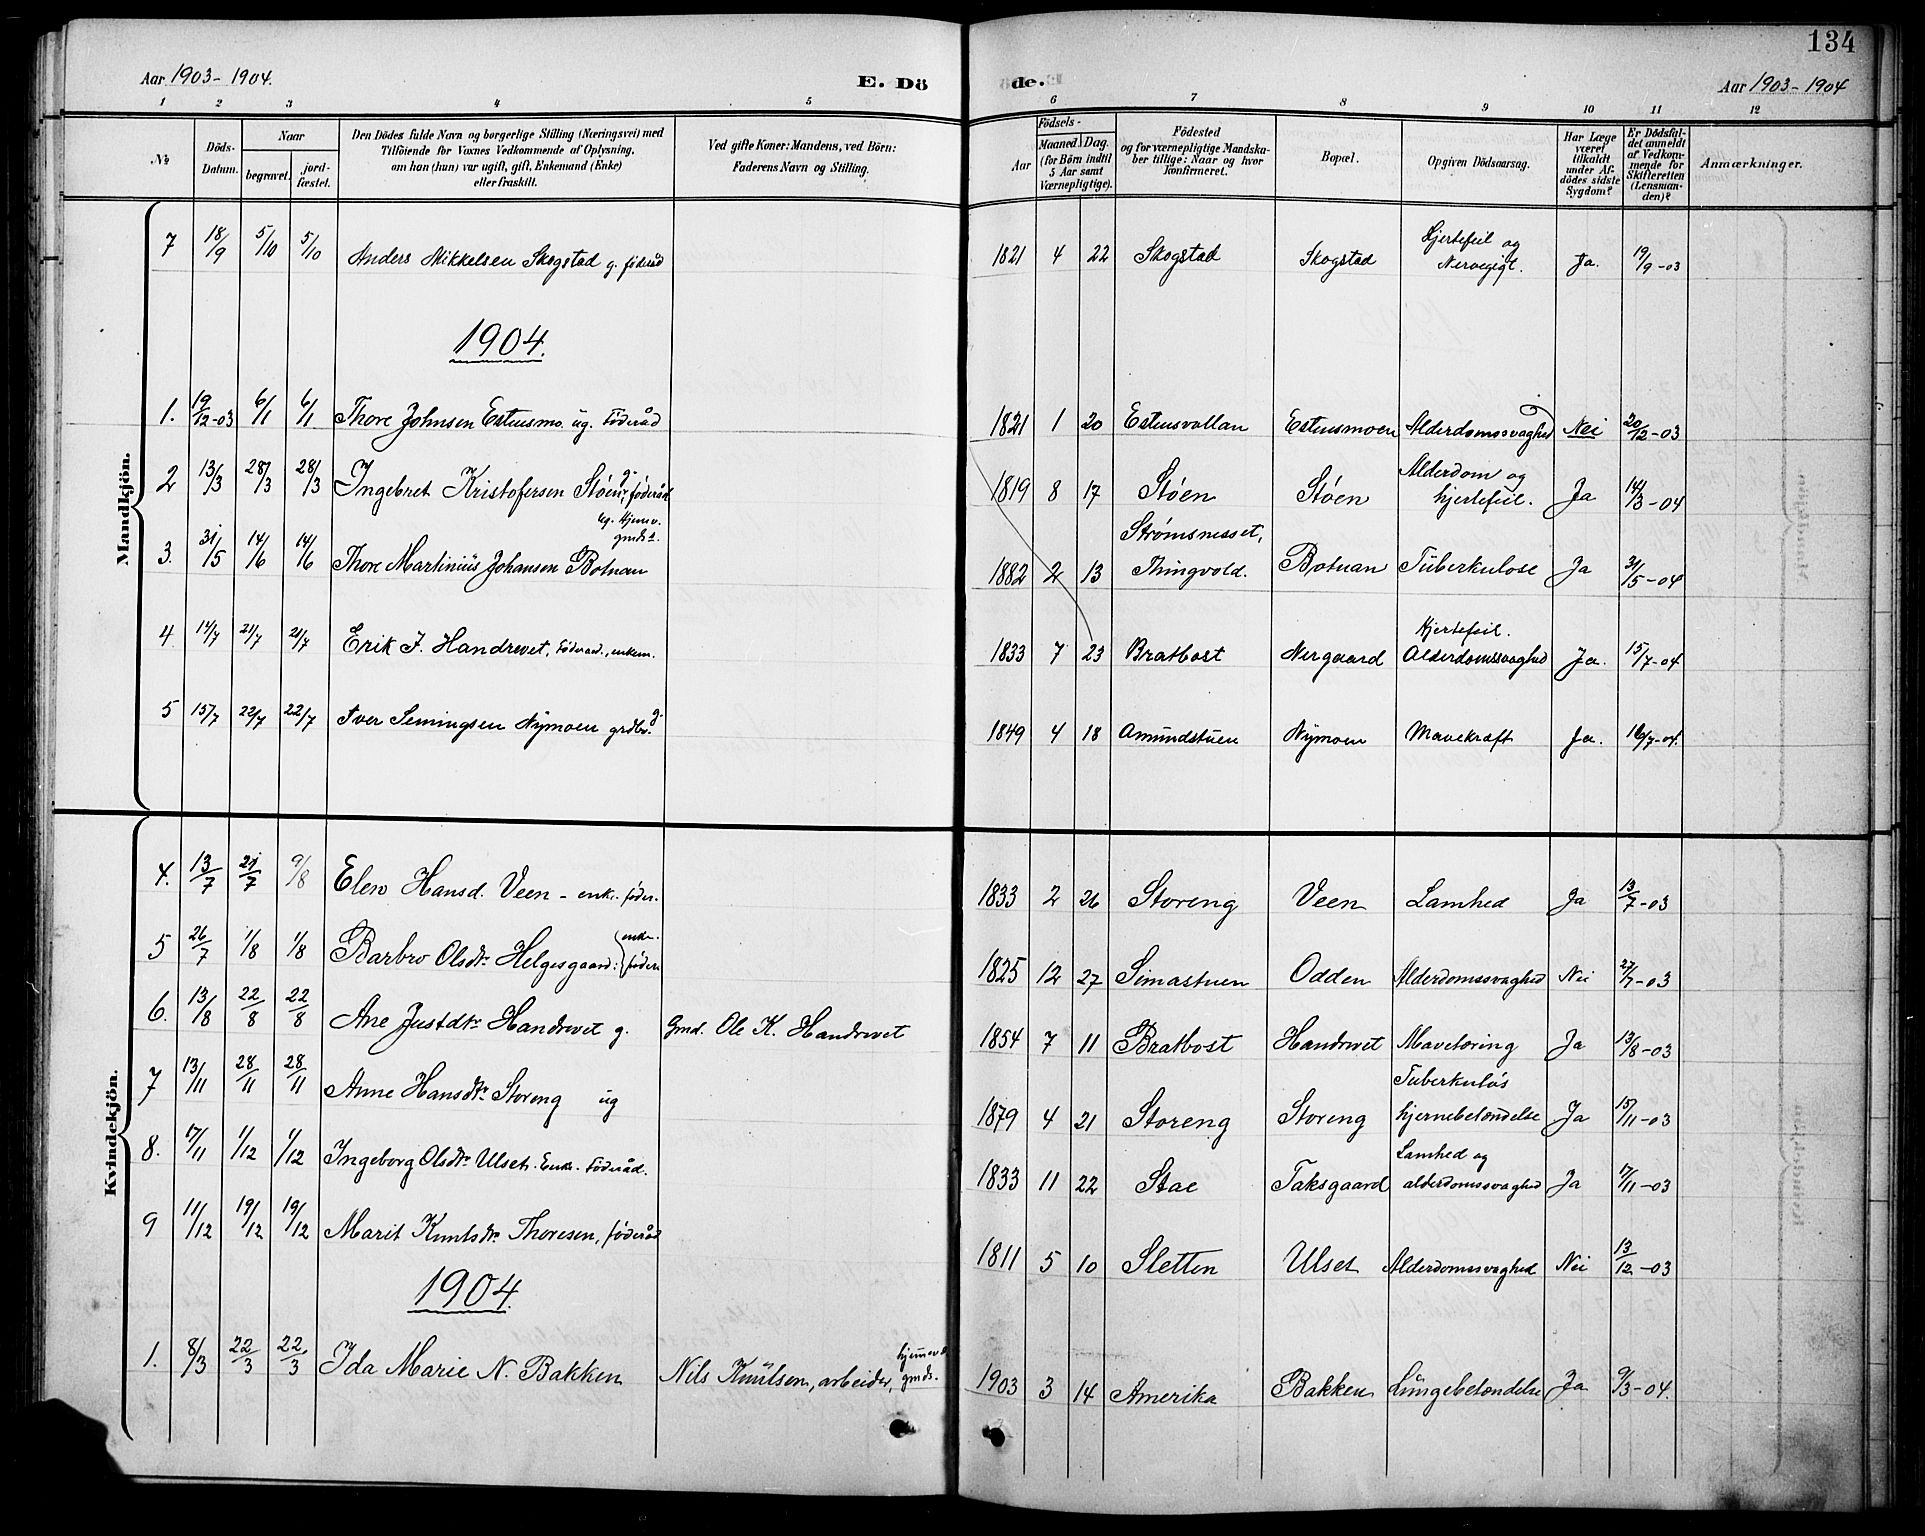 134
Aar 1903-1904.
E. Dö
de.
Aar 1903-1904
1 2 3 4 5 6 7 8 9 10 11 12
No
Döds-
Datum.
Naar
begravet.
jord-
fæstet.
Den Dödes fulde Navn og borgerlige Stilling (Næringsvei) med
Tilföiende for Voxnes Vedkommende af Oplysning,
om han (hun) var ugift, gift, Enkemand (Enke)
eller fraskilt.
Ved gifte Koner: Mandens, ved Börn:
Faderens Navn og Stilling.
Födsels-
Aar
Maaned. Dag.
(for Börn indtil
5 Aar samt
Værnepligtige).
Födested
og for værnepligtige Mandska-
ber tillige: Naar og hvor
konfirmeret.
Bopæl.
Opgiven Dödsaarsag.
Har Læge
været
tilkaldt
under Af-
dödes sidste
Sygdom?
Er Dödsfal-
det anmeldt
af Vedkom-
mende for
Skifteretten
(Lensman-
den)?
Anmærkninger.
Mandkjön.
7 18/9 5/10 5/10 Anders Mikkelsen Skogstad g. föderåd 1821 4 22 Skogstad Skogstad Hjertefeil og Nervegigt. Ja. 19/9-03
1904.
1. 19/12-03 6/1 6/1 Thore Johnsen Estensmo. ug. Föderåd 1821 1 20 Estensvollan Estensmoen Alderdomssvaghed Nei 20/12-03
2 13/3 28/3 28/3 Ingebret Kristofersen Støen, g. föderåd 1819 8 17 Støen Støen Alderdom og hjertefeil. Ja 14/3-04
3. 31/5 14/6 14/6 Thore Martinius Johansen Botnan ug. Hjemv. gmds. 1882 2 13 Strømsnesset, Thingvold. Botnan Tuberkulose Ja 31/5-04
4 14/7 21/7 21/7 Erik J. Handrevet, Föderåd., enkem. 1833 7 23 Bratbost Nergaard Hjertefeil. Alderdomssvaghed Ja. 15/7-04
5 15/7 22/7 22/7 Iver Semingsen Nÿmoen grdbr. g. 1849 4 18 Amundstuen Nÿmoen Mavekræft Ja. 16/7-04.
Kvindekjön.
4. 13/7 21/7 9/8 Elen Hansd. Veen - enke. föder. 1833 2 26 Storeng Veen Lamhed Ja 13/7-03
5 26/7 1/8 1/8 Barbro Olsdtr. Helgesgaard: enke. föder. 1825 12 27 Simastuen Odden Alderdomssvaghed Nei 27/7-03
6. 13/8 22/8 22/8 Ane Justdtr. Handrevet g. Gmd. Ole K. Handrevet 1854 7 11 Bratbost Handrevet Mavetæring Ja 13/8-03
7 13/11 28/11 28/11 Anne Hansdtr. Storeng ug 1879 4 21 Storeng Storeng Tuberkuløs hjernebetændelse Ja 15/11-03
8. 17/11 1/12 1/12 Ingeborg Olsdtr. Ulset. Enke. Föderåd. 1833 11 22 Stae Taksgaard Lamhed og alderdomssvaghed Ja 17/11-03
9 11/12 19/12 19/12 Marit Knutsdtr. Thoresen, föderåd 1811 5 10 Sletten Ulset Alderdomssvaghed Nei 13/12-03
1904.
1. 8/3 22/3 22/3 Ida Marie N. Bakken Nils Knutsen, arbeider, hjemv. gmds. 1903 3 14 Amerika Bakken Lungebetændelse Ja 9/3-04.